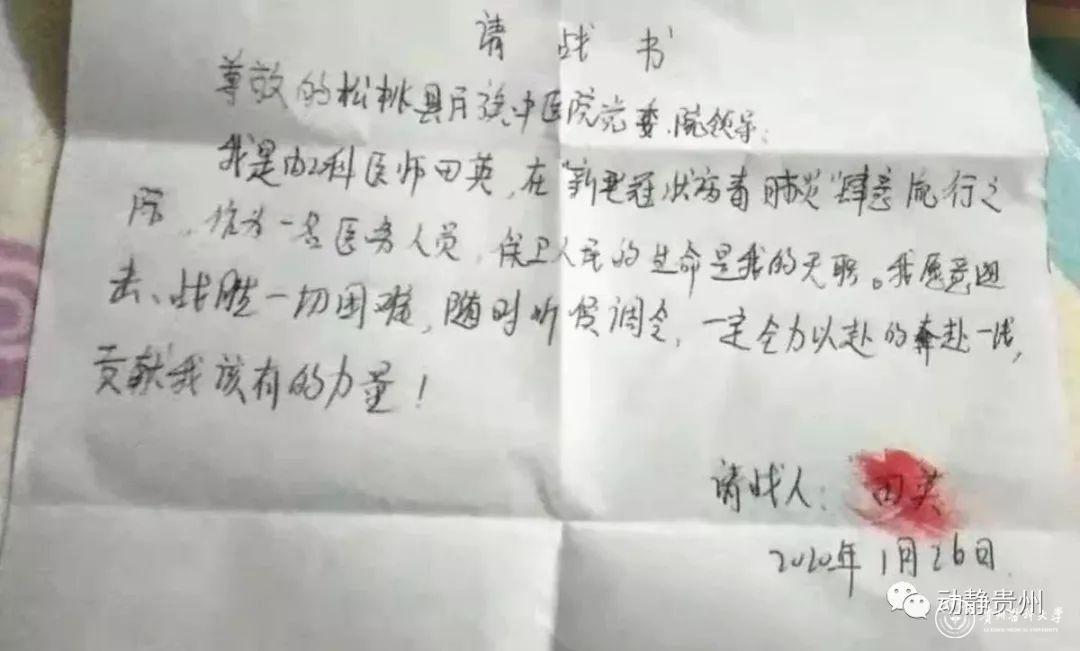 请战书
尊敬的松桃县民族中医院党委、院领导:
我是内科医师田英,在“新型冠状病毒肺炎”肆意流行之
际,作为一名医务人员,保卫人民的生命是我的天职。我愿意迎
去、战胜一切困难,随时听候调令,一定全力以赴的奔赴一线,
贡献我该有的力量!
请战人:田英
2020年1月26日
动静贵州
贵州医科大学
GUIZHOU MEDICAL UNIVERSITY